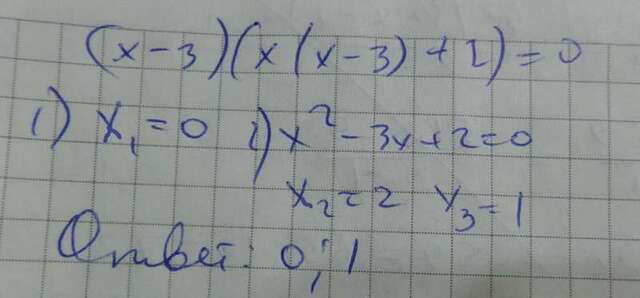 (x-3)(x(x-3)+2)=0
1) x₁=0 2) x²-3x+2=0
x₂=2 x₃=1
Ответ: 0; 1